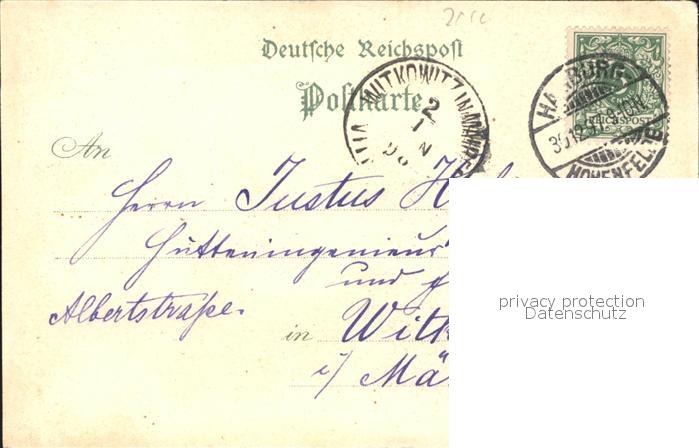 Deutsche Reichspost
Postkarte
WITKOWITZ IN MÄHREN
2
1
HAMBURG
REICHSPOST
HOHENFELDE
An
Herrn Justus
Hütteningenieur
und
Albertstraße.
in Witk
i/ Mä
privacy protection
Datenschutz